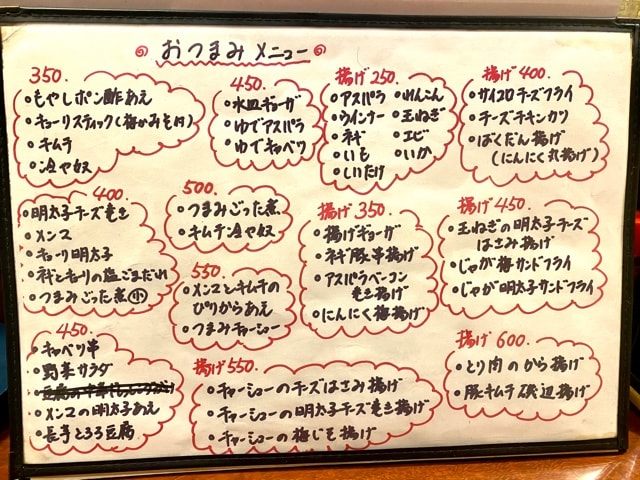 おつまみメニュー
350.
・もやしポン酢あえ
・キューリスティック(梅かみそ付)
・キムチ
・冷や奴
450.
・水皿ギョーザ
・ゆでアスパラ
・ゆでキャベツ
揚げ250.
・アスパラ ・れんこん
・ウインナー ・玉ねぎ
・ネギ ・エビ
・いも ・いか
・しいたけ
揚げ400.
・サイコロチーズフライ
・チーズチキンカツ
・ばくだん揚げ
(にんにく丸揚げ)
400.
・明太子チーズ巻き
・メンマ
・キューリ明太子
・ネギとキューリの塩ごまだれ
・つまみごった煮(小)
500.
・つまみごった煮
・キムチ冷や奴
550.
・メンマとキムチの
ぴりからあえ
・つまみチャーシュー
揚げ350.
・揚げギョーザ
・ネギ豚串揚げ
・アスパラベーコン
巻き揚げ
・にんにく梅揚げ
揚げ450.
・玉ねぎの明太子チーズ
はさみ揚げ
・じゃが梅サンドフライ
・じゃが明太子サンドフライ
450.
・キャベツ串
・野菜サラダ
・メンマの明太子あえ
・長芋とろろ豆腐
揚げ550.
・チャーシューのチーズはさみ揚げ
・チャーシューの明太子チーズ巻き揚げ
・チャーシューの梅じそ揚げ
揚げ600.
・とり肉のから揚げ
・豚キムチ磯辺揚げ